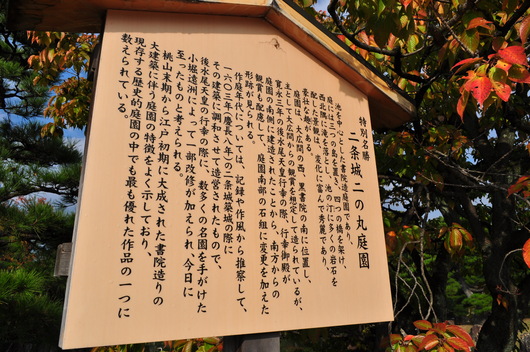 特別名勝
二条城二の丸庭園
池を中心とした書院造庭園であり、
庭には三つの島と、四つの橋を架け、
西北隅に滝を落とし、池の汀に多くの岩石を
配した景観は、変化に富んで秀麗であり
豪壮な趣がある。
庭園は、大広間の西、黒書院の南に位置し、
主として大広間からの観賞を想定して造られているが、
寛永三年の後水尾天皇行幸の際、行幸御殿が
庭園の南側に建造されたことから、南方からの
観賞も配慮して、庭園南部の石組に変更を加えた
形跡が見られる。
作庭年代については、記録や作風から推察して、
一六〇三年（慶長八年）の二条城築城の際に
その建築に調和させて造営されたもので、
後水尾天皇の行幸の際に、数多くの名園を手がけた
小堀遠洲によって一部改修が加えられ、今日に
至ったものと考えられる。
桃山末期から江戸初期に大成された書院造りの
大建築に伴う庭園の特徴をよく示しており、
現存する歴史的庭園の中でも最も優れた作品の一つに
数えられている。